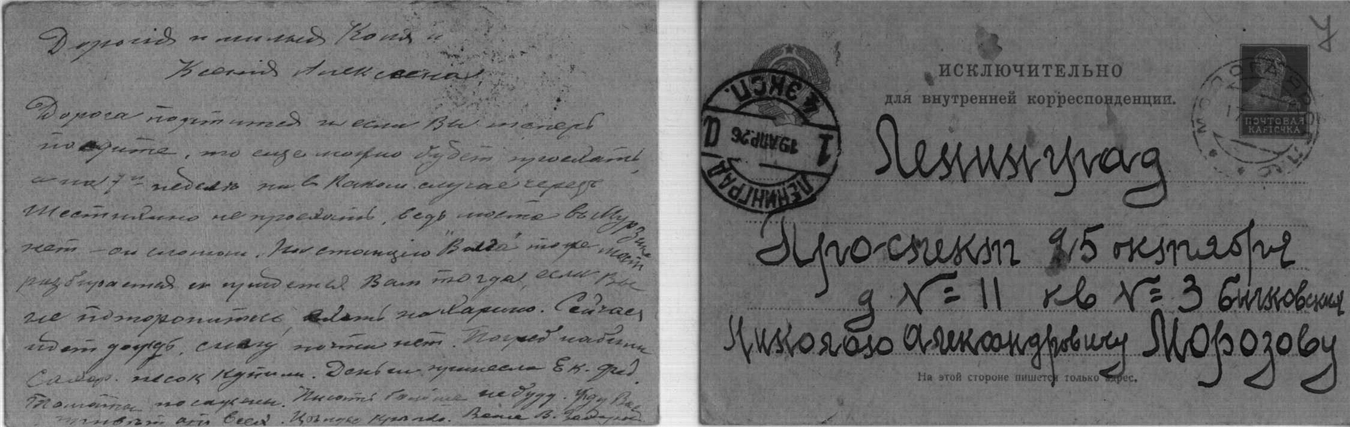 Дорогие и милые Коля и
Ксения Алексеевна
Дорога портится и если Вы теперь
поедите, то еще можно будет проехать
на 7ой неделе ни в каком случае через
Шестихино не проехать, ведь моста в
нет - он сломан. На станцию "Волга" тоже
разбирается и придется Вам тогда, если Вы
не поторопитесь, ехать на Харино. Сейчас
идет дождь, снегу почти нет. Погреб набили
песок купили. Деньги принесла Ек. Фед.
Томаты посажены. Писать больше не буду. Жду Вас
привет от всех. Целую крепко.
ИСКЛЮЧИТЕЛЬНО
для внутренней корреспонденции.
ПОЧТОВАЯ
КАРТОЧКА
ЛЕНИНГРАД
19 АПР 26
4 ЭКСП.
1
Ленинград
Проспект 25 октября
д № 11 кв № 3 Бычковских
Николаю Александровичу Морозову
На этой стороне пишется только адрес.